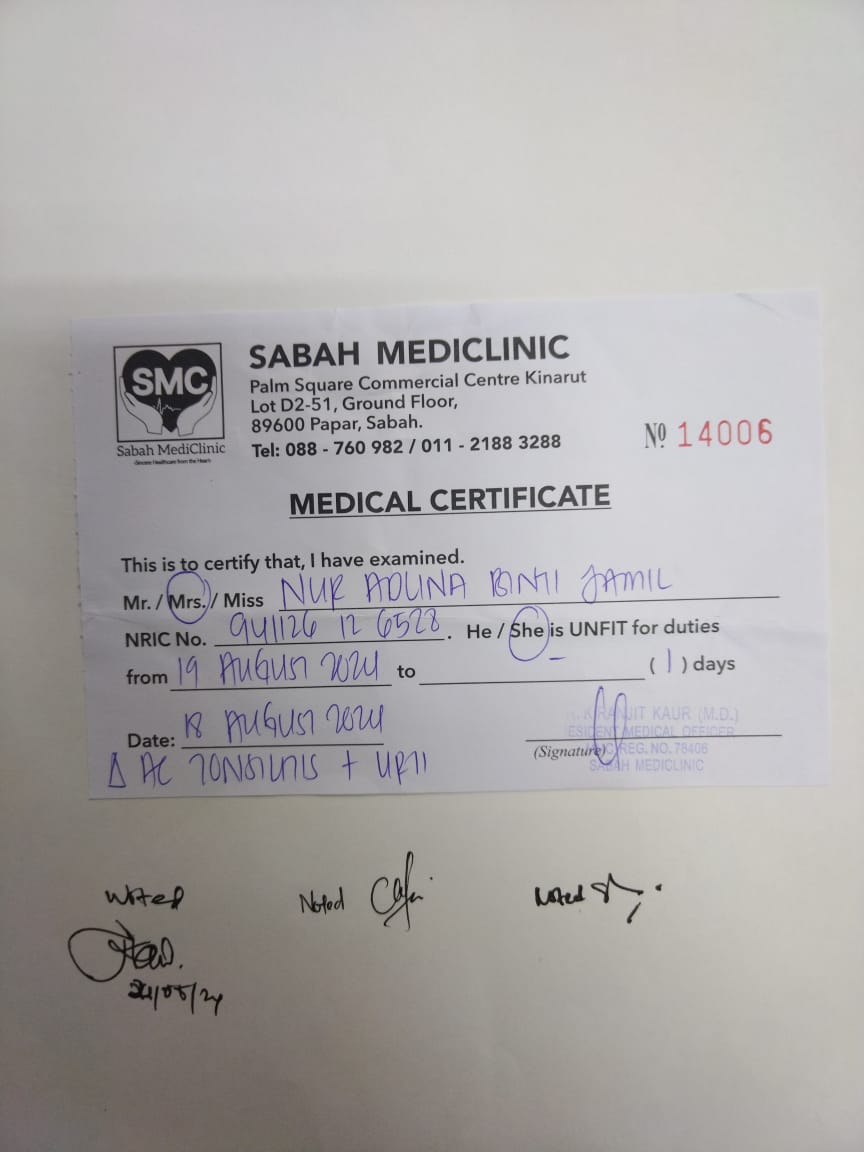 SMC
Sabah MediClinic
-Sincere Healthcare from the Heart-
SABAH MEDICLINIC
Palm Square Commercial Centre Kinarut
Lot D2-51, Ground Floor,
89600 Papar, Sabah.
Tel: 088 - 760 982 / 011 - 2188 3288
Nº 14006
MEDICAL CERTIFICATE
This is to certify that, I have examined.
Mr. / Mrs. / Miss NUR ADLINA BINTI JAMIL
NRIC No. 941126 12 6528. He / She is UNFIT for duties
from 19 AUGUST 2024 to ( 1 ) days
Date: 18 AUGUST 2024
KIRANJIT KAUR (M.D.)
RESIDENT MEDICAL OFFICER
(Signature) REG. NO. 78406
SABAH MEDICLINIC
Δ AC TONSILITIS + URTI
Noted Noted Noted